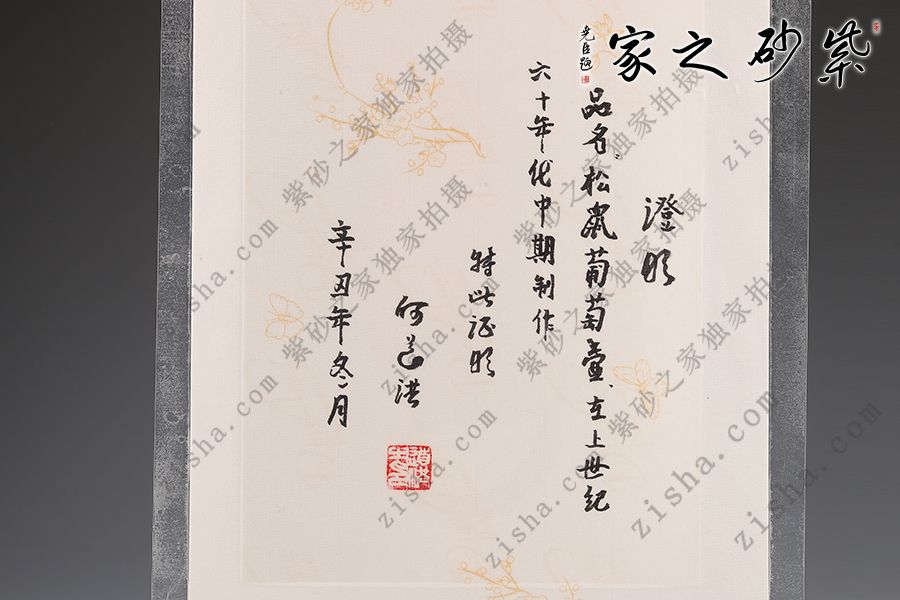 紫砂之家
尧臣题
澄明
品名"松鼠葡萄壶、在上世纪
六十年代中期制作
特此证明
何道洪
辛丑年冬月
紫砂之家独家拍摄
zisha.com